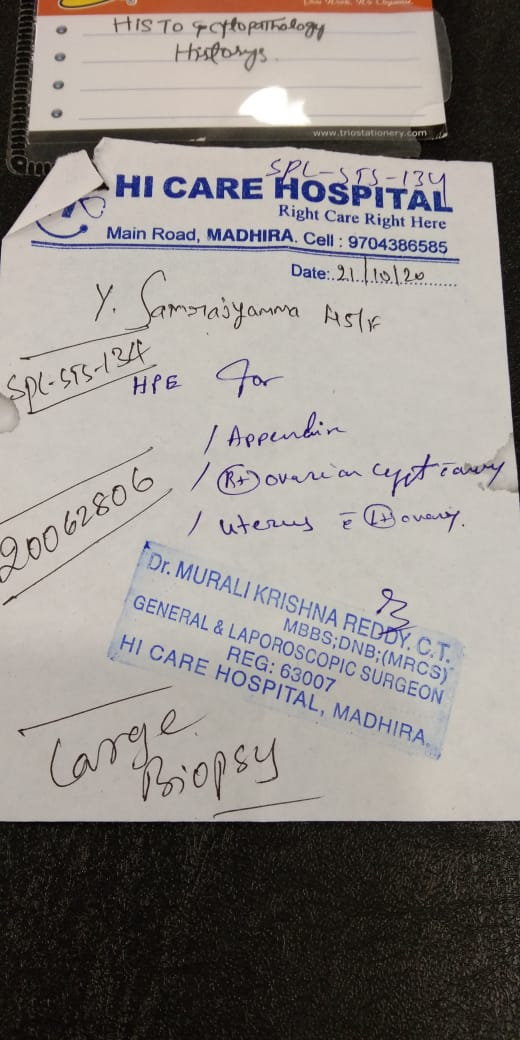 HISTO & cytopathology
Historys.
www.triostationery.com
SPL-STS-134
HI CARE HOSPITAL
Right Care Right Here
Main Road, MADHIRA. Cell : 9704386585
Date:.21/10/20
Y. 45/F
SPL-STS-134
HPE for
/ Appendix
/ (Rt) ovarian cyst ovary
20062806
/ uterus c̄ (Lt) ovary.
Dr. MURALI KRISHNA REDDY. C.T.
MBBS;DNB;(MRCS)
GENERAL & LAPOROSCOPIC SURGEON
REG: 63007
HI CARE HOSPITAL, MADHIRA.
Large
Biopsy